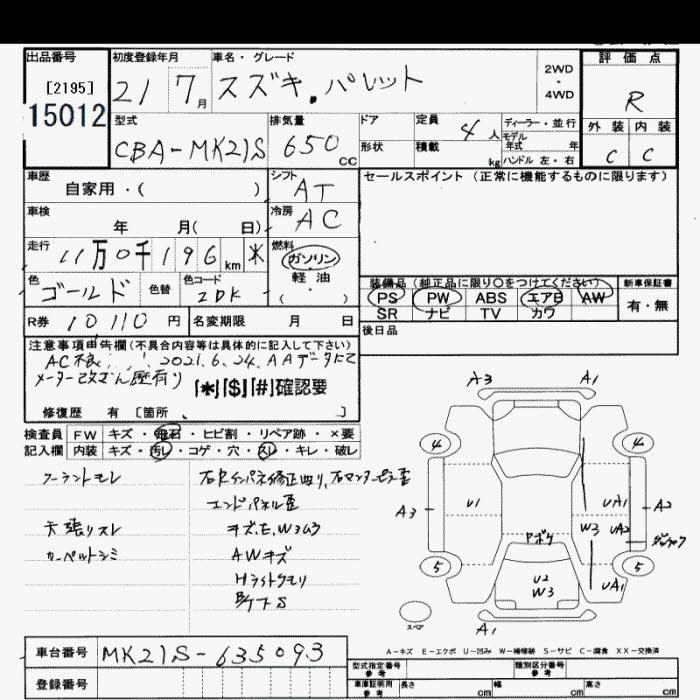 出品番号 初度登録年月 車名・グレード 2WD・4WD 評価点
[2195]
15012 21 7月 スズキ・パレット R
外装 内装
C C
型式 排気量 ドア 定員 ディーラー・並行
CBA-MK21S 650 cc 形状 積載 4人 kg モデル年式 年 ハンドル 左・右
車歴 シフト セールスポイント (正常に機能するものに限ります)
自家用・( ) AT
車検 冷房
年 月( 日) AC
走行 燃料
11万0千196km * ガソリン 軽・油 ( )
色 色替 色コード
ゴールド ZDK
装備品 (純正品に限り○をつけてください) 新車保証書
PS PW ABS エアB AW 有・無
SR ナビ TV カワ
R券 10110円 名変期限 月 日 後日品
注意事項申告欄(不具合内容等は具体的に記入して下さい)
AC不良 2021.6.24.AAデータにて
メーター改ざん歴有り [*][$][#]確認要
修復歴 有 [箇所 ]
検査員 FW キズ・飛石・ヒビ割・リペア跡・×要
記入欄 内装 キズ・汚レ・コゲ・穴・スレ・キレ・破レ
クーラントモレ
天張リスレ
カーペットシミ
エンドパネル歪
キズ.E.W3ムラ
AWキズ
Hライトクモリ
A3 A1
4 4
A3 U1 UA1 A2
W3 UA2
5 5
U2
W3 UA1
スペア A1
A-キズ E-エクボ U-凹み W-補修跡 S-サビ C-腐食 XX-交換済
車台番号 MK21S-635093
登録番号
型式指定番号 参考 類別区分番号 参考
車庫証明用 参考 長さ cm 幅 cm 高さ cm